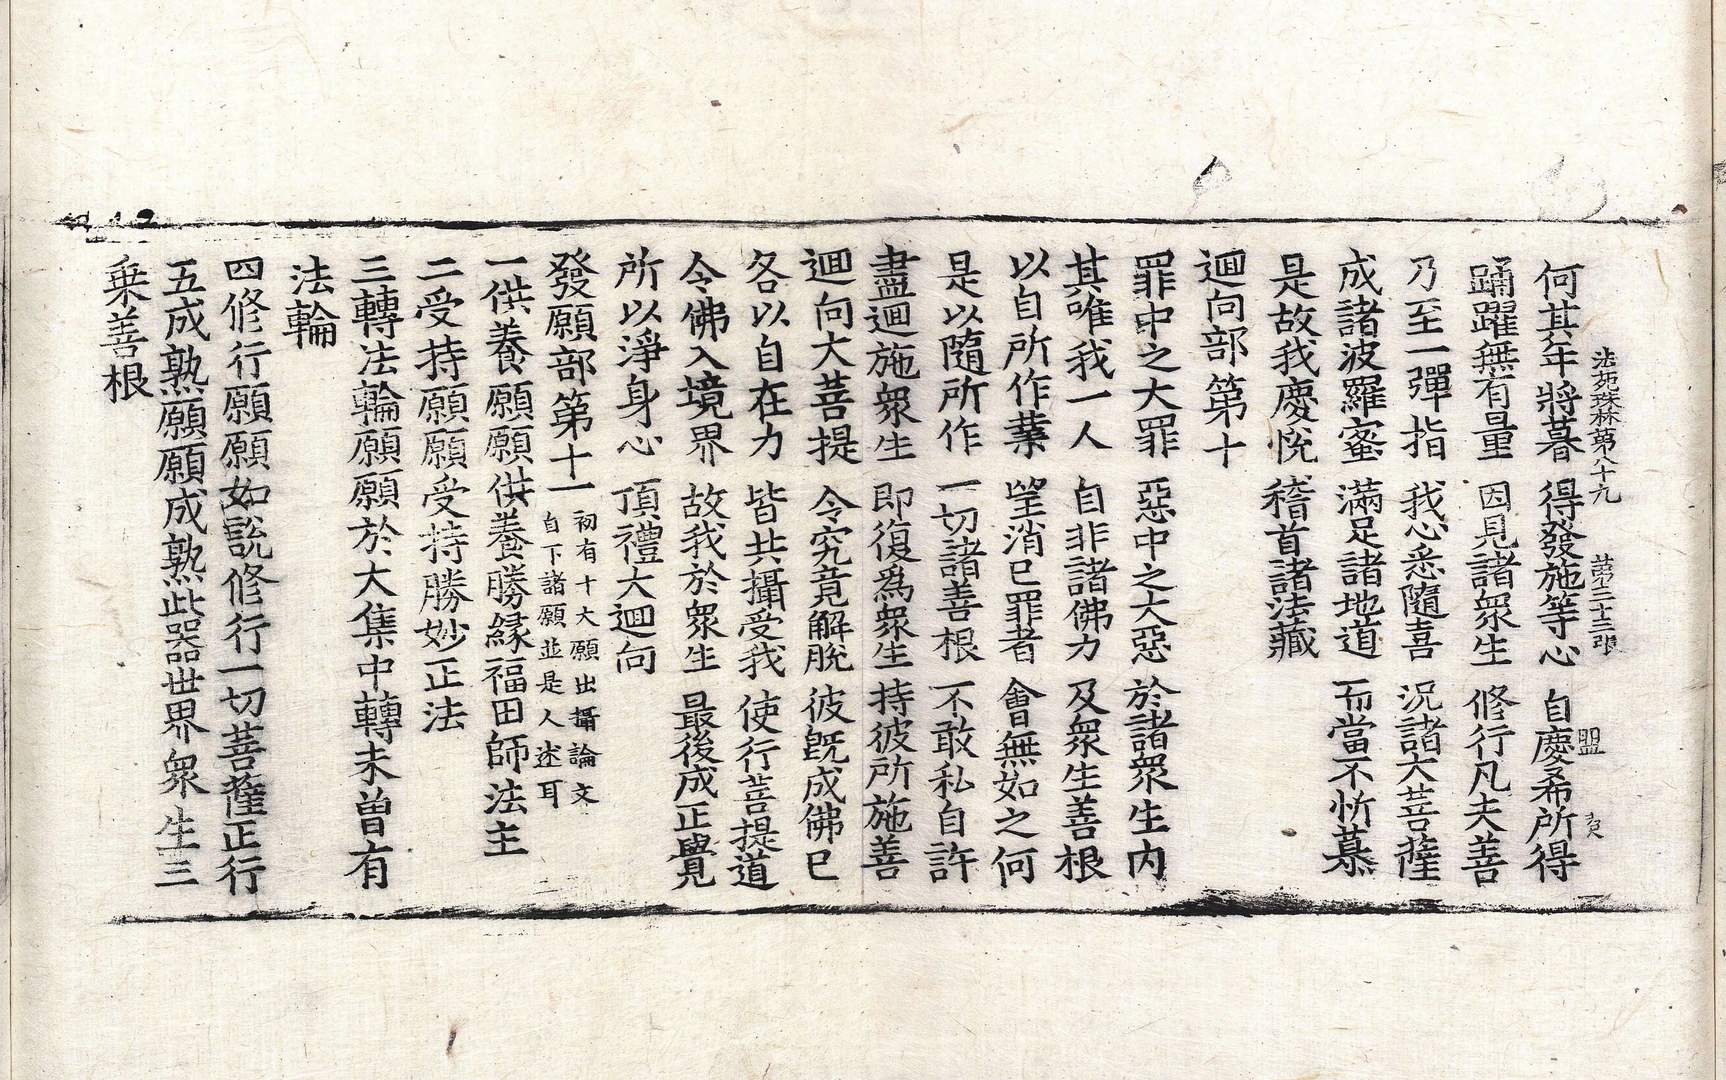 法苑珠林第八十九 第三十三張 盟
何其年將暮 得發施等心 自慶希所得
踊躍無有量 因見諸衆生 修行凡夫善
乃至一彈指 我心悉隨喜 況諸大菩薩
成諸波羅蜜 滿足諸地道 而當不忻慕
是故我慶悅 稽首諸法藏
迴向部第十
罪中之大罪 惡中之大惡 於諸衆生内
其唯我一人 自非諸佛力 及衆生善根
以自所作業 望消已罪者 會無如之何
是以隨所作 一切諸善根 不敢私自許
盡迴施衆生 即復爲衆生 持彼所施善
迴向大菩提 令究竟解脫 彼旣成佛已
各以自在力 皆共攝受我 使行菩提道
令佛入境界 故我於衆生 最後成正覺
所以淨身心 頂禮大迴向
發願部第十一 初有十大願出攝論文
自下諸願並是人述耳
一供養願願供養勝緣福田師法主
二受持願願受持勝妙正法
三轉法輪願願於大集中轉未曾有
法輪
四修行願願如說修行一切菩薩正行
五成熟願願成熟此器世界衆生三
乗善根